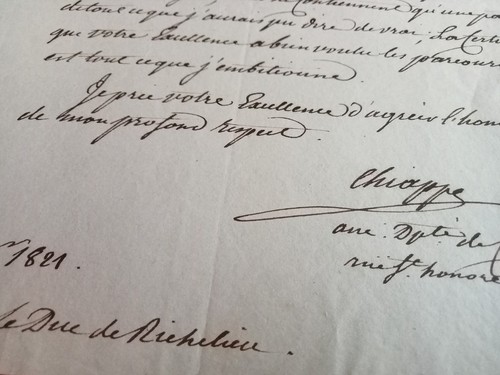 qu'une pa
de tout ce que j'aurais pu dire de vrai, la Certi
que votre Excellence a bien voulu les parcouri
est tout ce que j'ambitionne.
Je prie votre Excellence d'agréer l'hom
de mon profond respect.
Chiappe
anc. Dpté. de
rue St. honoré
1821.
le Duc de Richelieu.